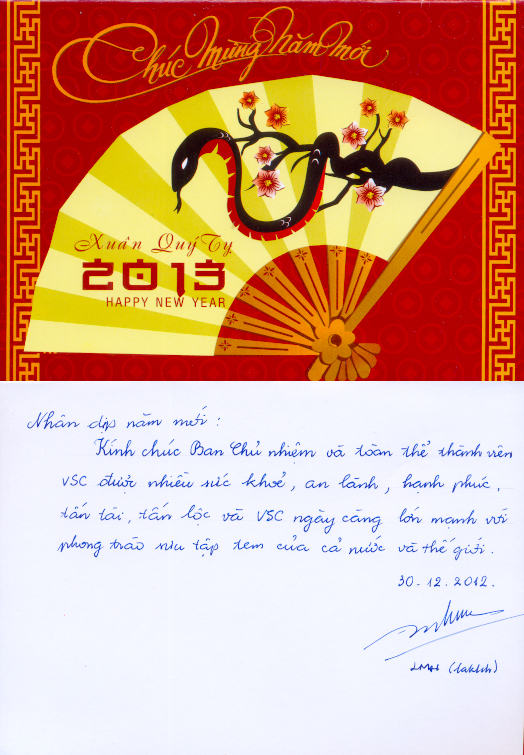 Chúc Mừng Năm Mới
Xuân Quý Tỵ
2013
HAPPY NEW YEAR
Nhân dịp năm mới :
Kính chúc Ban Chủ nhiệm và toàn thể thành viên
VSC được nhiều sức khoẻ, an lành, hạnh phúc,
tấn tài, tấn lộc và VSC ngày càng lớn mạnh với
phong trào sưu tập tem của cả nước và thế giới.
30-12.2012.